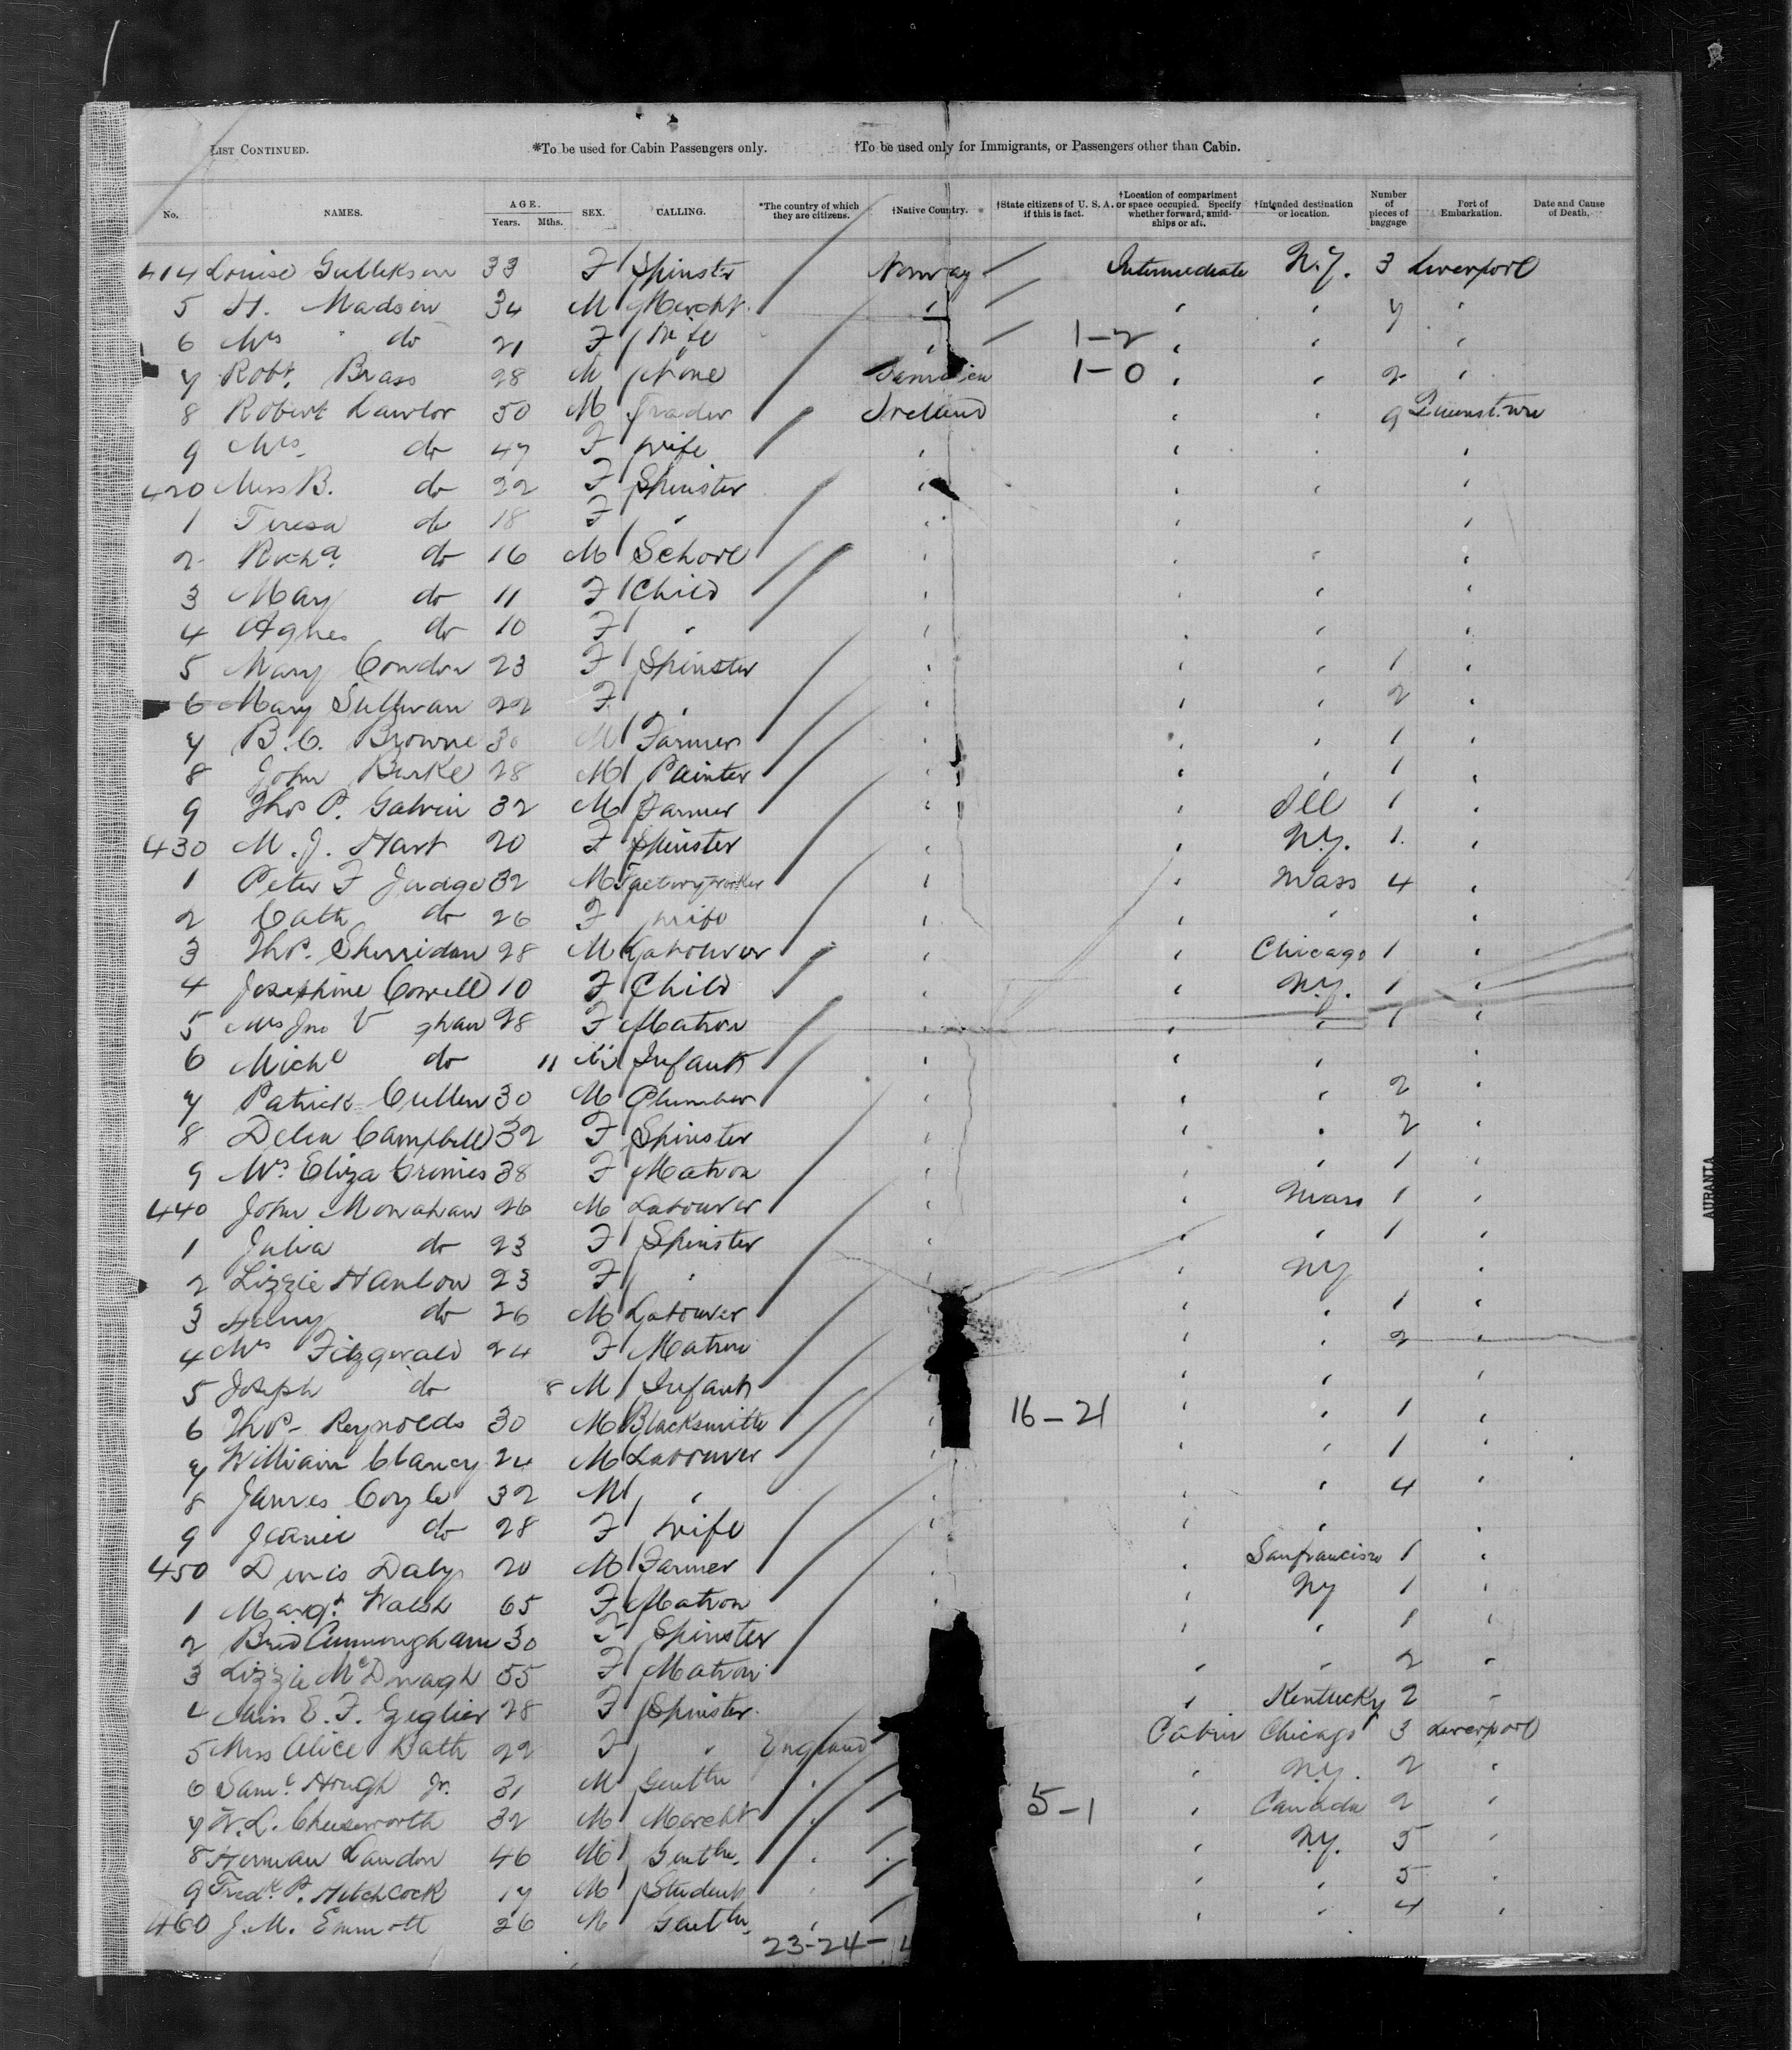 LIST CONTINUED. *To be used for Cabin Passengers only. †To be used only for Immigrants, or Passengers other than Cabin.
No. NAMES. AGE. Years. Mths. SEX. CALLING. *The country of which they are citizens. †Native Country. †State citizens of U. S. A. if this is fact. †Location of compartment or space occupied. Specify whether forward, amidships or aft. †Intended destination or location. Number of pieces of baggage Port of Embarkation. Date and Cause of Death.
414 Louise Gulleksen 33 F Spinster Norway Intermediate N.Y. 3 Liverpool
5 H. Madsen 34 M Mercht. " " " 7 "
6 Mrs " do 21 F Wife " 1-2 " " "
7 Robt. Brass 28 M None 1-0 " " 2 "
8 Robert Lawlor 50 M Trader Ireland " " 9
9 Mrs. do 47 F Wife " " " "
420 Miss B. do 22 F Spinster " " " "
1 Teresa do 18 F " " " "
2 Richd. do 16 M School " " " "
3 May do 11 F Child " " " "
4 Agnes do 10 F " " " " "
5 Mary Condon 23 F Spinster " " " 1 "
6 Mary Sullivan 22 F " " " " 2 "
7 B. C. Browne 30 M Farmer " " " 1 "
8 John Burke 28 M Painter " " " 1 "
9 Thos P. Galvin 32 M Farmer " " Ill 1 "
430 M. J. Hart 20 F Spinster " " N.Y. 1. "
1 Peter F Judge 32 M Factory worker " " Mass 4 "
2 Cath do 26 F wife " " " "
3 Thos. Sherridan 28 M Labourer " " Chicago 1 "
4 Josephine Cowell 10 F Child " " N.Y. 1 "
5 Mrs Jno V ghan 28 F Matron " " " 1 "
6 Michl do 11 M Infant " " " "
7 Patrick Cullen 30 M Plumber " " " 2 "
8 Delia Campbell 32 F Spinster " " " 2 "
9 Mrs. Eliza Grimes 38 F Matron " " " 1 "
440 John Monahan 26 M Labourer " " Mass 1 "
1 Julia do 23 F Spinster " " " 1 "
2 Lizzie Hanlow 23 F " " " NY "
3 Henry do 26 M Labourer " " 1 "
4 Mrs Fitzgerald 24 F Matron " " 2 "
5 Joseph do 8 M Infant " " "
6 Thos. Reynolds 30 M Blacksmith " 16-21 " " 1 "
7 William Clancy 24 M Labourer " " " 1 "
8 James Coyle 32 M " " " " 4 "
9 Jeanie do 28 F Wife " " " "
450 Denis Daly 20 M Farmer " " Sanfrancisco 1 "
1 Margt. Walsh 65 F Matron " " NY 1 "
2 Brid Cunningham 30 F Spinster " " 1 "
3 Lizzie McDonagh 55 F Matron " " 2 "
4 Miss E. F. 28 F Spinster " Kentucky 2 "
5 Miss Alice Bath 22 F " England Cabin Chicago 3 Liverpool
6 Saml. Hough Jr. 31 M Gentln " " N.Y. 2 "
7 Chesworth 32 M Mercht " 5-1 " Canada 2 "
8 Herman Landon 46 M Gentln. " " N.Y. 5 "
9 Fredk. P. Hitchcock 17 M Student " " 5 "
460 J. M. Emmott 26 M Gentln. " " " 4 "
23-24-
AURANIA